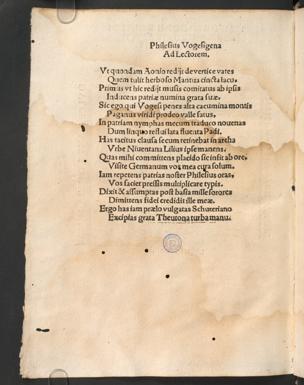 Philesius Vogesigena
Ad Lectorem.
Vt quondam Aonio redijt de vertice vates
Quem tulit herboso Mantua cincta lacu.
Primus vt hic redijt musis comitatus ab ipsis
Inducens patriæ numina grata suæ.
Sic ego qui Vogesi penes alta cacumina montis
Paganus viridi prodeo valle satus,
In patriam nymphas mecum traduco nouenas
Dum linquo restui lata fluenta Padi.
Has tacitus clausa secum retinebat in archa
Vrbe Lilius ipse manens.
Quas mihi committens placido sic insit ab ore,
Visite Germanum vos mea cura solum.
Iam repetens patrias noster Philesius oras,
Vos faciet pressis multiplicare typis.
Dixit & assumptas post basia mille sorores
Dimittens fidei credidit ille meæ.
Ergo has iam prælo vulgatas Schureriano
Excipias grata Theutona turba manu.